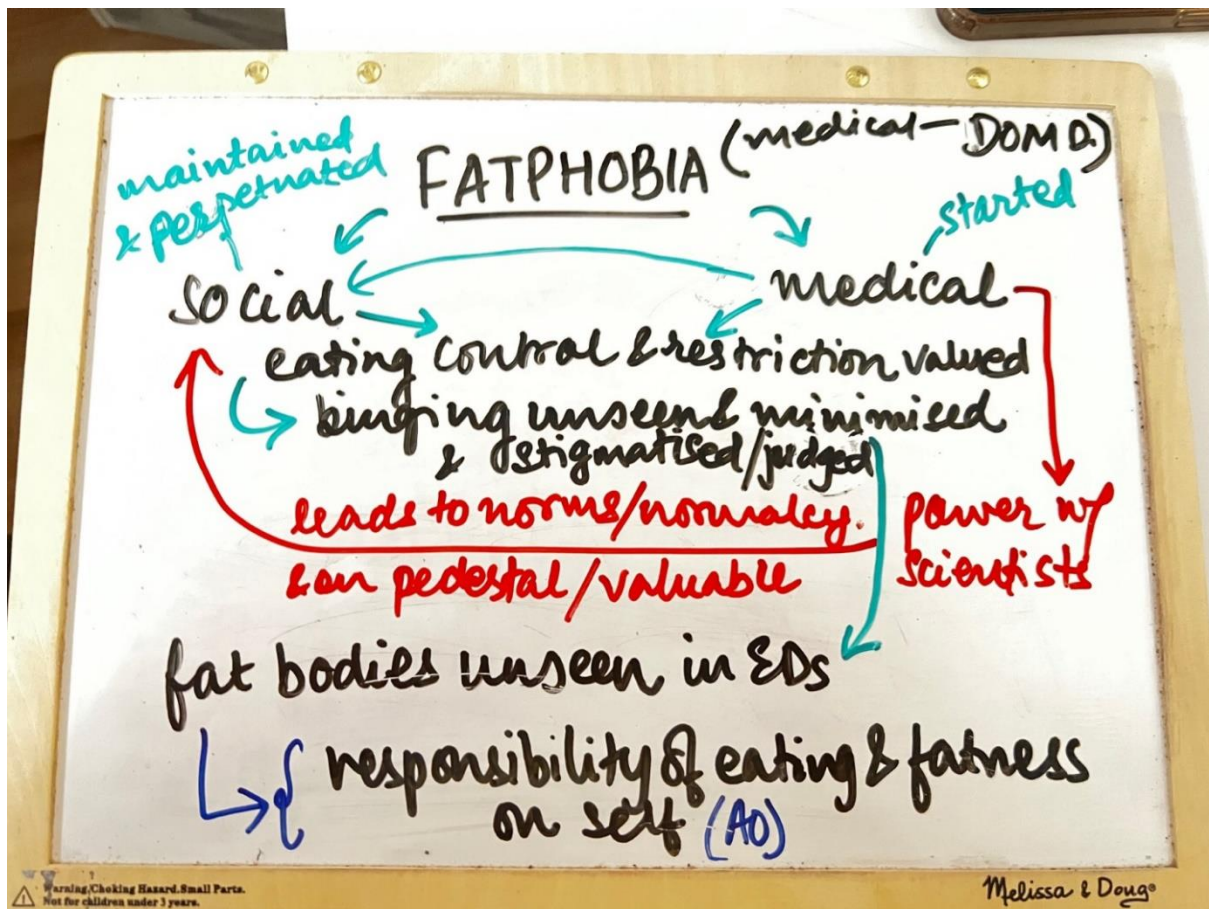 maintained
& perpetuated
FATPHOBIA (medical - DOM D.)
started
social
medical
eating control & restriction valued
binging unseen & minimised
& stigmatised/judged
leads to norms/normalcy.
& on pedestal/valuable
power w/
scientists
fat bodies unseen in EDs
responsibility of eating & fatness
on self (AO)
Warning. Choking Hazard. Small Parts.
Not for children under 3 years.
Melissa & Doug®